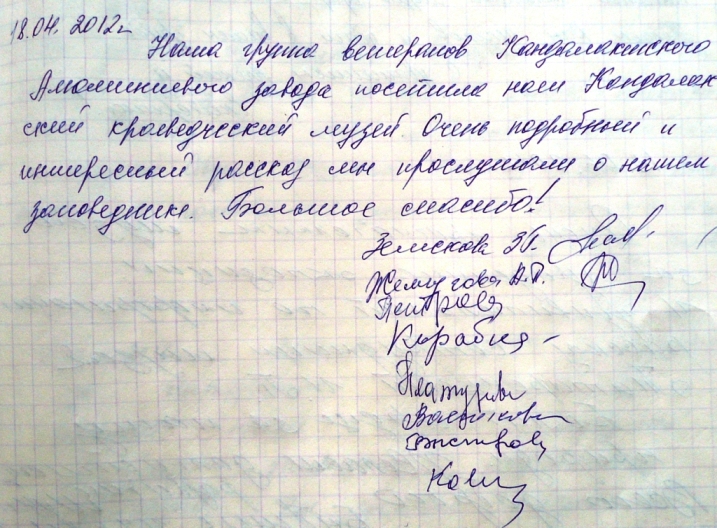 18.04.2012г.
Наша группа ветеранов Кандалакшского
Алюминиевого завода посетила наш Кандалак
ский краеведческий музей. Очень подробный и
интересный рассказ мы прослушали о нашем
заповеднике. Большое спасибо!
Земскова
Жемчугова А.П.
Петрова